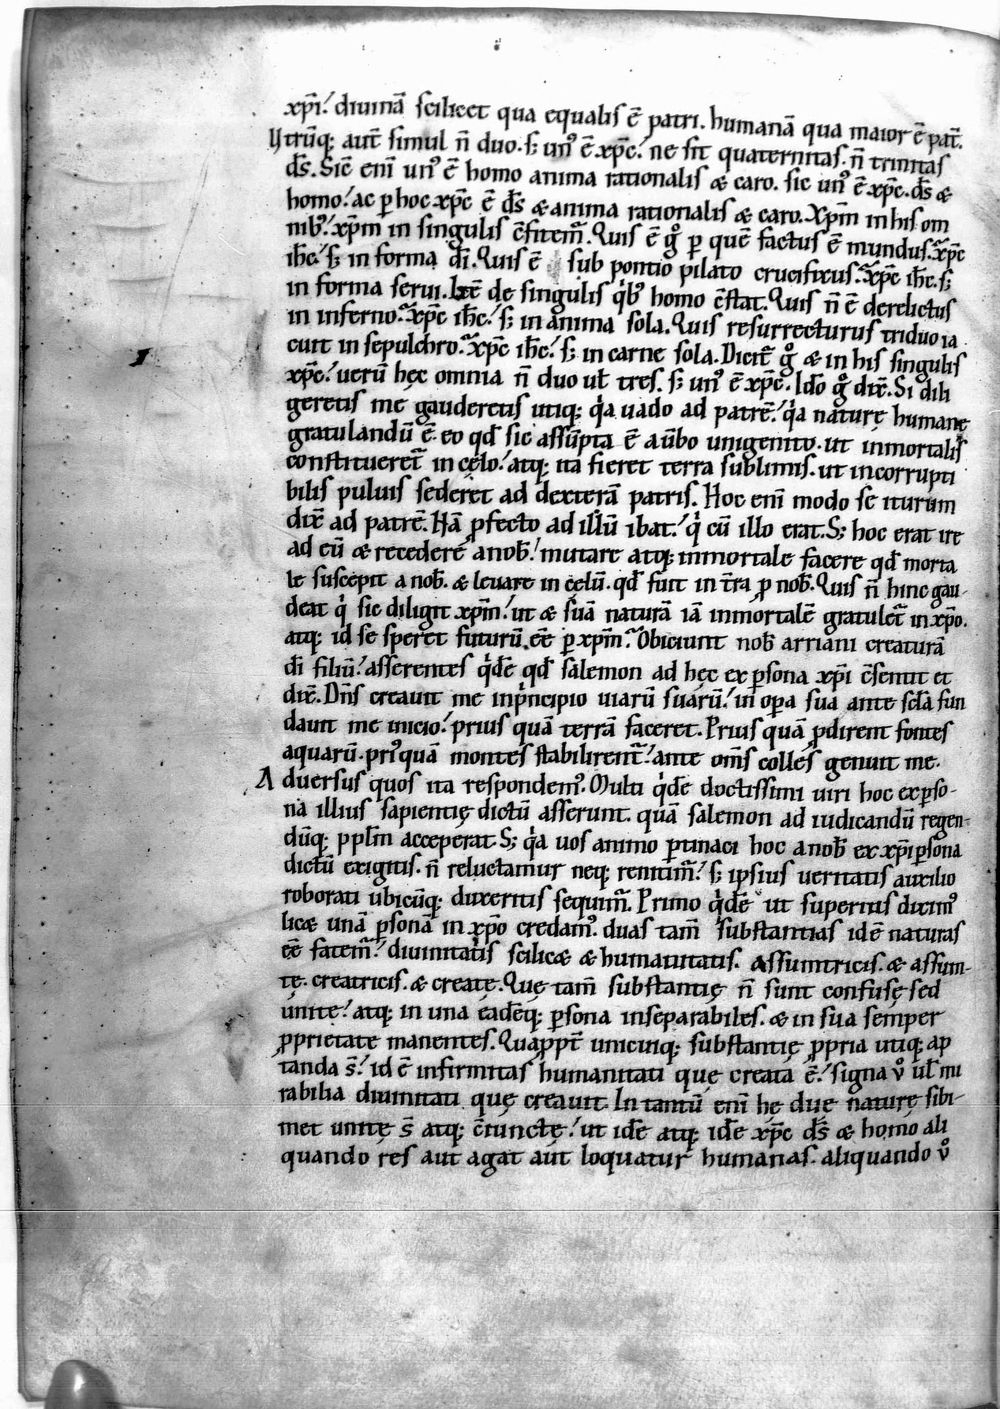 xp̄i. diuinā scilicet qua equalis ē patri. humanā qua maior ē pat̄.
Utrūq; aut̄ simul n̄ duo. s; unꝰ ē xp̄c. ne sit quaternitas. n̄ trinitas
d̄s. Sic̄ eni unꝰ ē homo anima rationalis & caro. sic unꝰ ē xp̄c. d̄s &
homo. ac ꝑ hoc xp̄c ē d̄s & anima rationalis & caro. Xp̄m in his om
nibꝰ. xp̄m in singulis c̄fitem̄. Quis ē gͦ ꝑ quē factus ē mundus. xp̄c
ih̄c. s; in forma d̄i. Quis ē sub pontio pilato crucifixus. xp̄c ih̄c. s;
in forma serui. Itē de singulis qͥbꝰ homo c̄stat. Quis n̄ ē derelictus
in inferno. xp̄c ih̄c. s; in anima sola. Quis resurrecturus triduo ia
cuit in sepulchro. xp̄c ih̄c. s; in carne sola. Dicit̄ gͦ & in his singulis
xp̄c. uerū hęc omnia n̄ duo ul̄ tres. s; unꝰ ē xp̄c. Ido gͦ dix̄. Si dili
geretis me gauderetis utiq; qͥa uado ad patrē. qͥa naturę humanę
gratulandū ē. eo qd̄ sic assūpta ē a ūbo unigenito. ut inmortalis
constitueret̄ in cęlo. atq; ita fieret terra sublimis. ut incorrupti
bilis puluis sederet ad dexterā patris. Hoc eni modo se iturum
dix̄ ad patrē. Nā ꝓfecto ad illū ibat. qͥ cū illo erat. S; hoc erat ire
ad eū & recedere a nob̄. mutare atq; inmortale facere qd̄ morta
le suscepit a nob̄. & leuare in cęlū. qd̄ fuit in t̄ra ꝓ nob̄. Quis n̄ hinc gau-
deat qͥ sic diligit xp̄m. ut & suā naturā iā inmortalē gratulet̄ in xp̄o.
atq; id se speret futurū. eē ꝑ xp̄m. Obiciunt nob̄ arriani creaturā
d̄i filiū. asserentes qͥdē qd̄ salemon ad hęc ex ꝑsona xp̄i c̄sentit et
dix̄. Dn̄s creauit me in pͥncipio uiarū suarū. in oꝑa sua ante sc̄la fun
dauit me inicio. prius quā terrā faceret. Prius quā ꝓdirent fontes
aquarū. priꝰquā montes stabilirent̄. ante om̄s colles genuit me.
Aduersus quos ita respondemꝰ. Multi qͥdē doctissimi uiri hoc ex ꝑso-
na illius sapientię dictū asserunt. quā salemon ad iudicandū regen-
dūq; ppl̄m acceperat. S; qͥa uos animo ꝑtinaci hoc a nob̄ ex xp̄i ꝑsona
dictū exigitis. n̄ reluctamur neq; renitim̄. s; ipsius ueritatis auxilio
roborati ubicūq; duxeritis sequim̄. Primo qͥdē ut supertius diximꝰ
licæ unā ꝑsonā in xp̄o credamꝰ. duas tam̄ substantias idē naturas
eē fatem̄. diuinitatis scilicæ & humanitatis. Assumtricis. & assum-
tę. creatricis. & creatę. Quę tam̄ substantię n̄ sunt confusę sed
unitę. atq; in una eadēq; ꝑsona inseparabiles. & in sua semper
ꝓprietate manentes. Quaꝓpt̄ unicuiq; substantię ꝓpria utiq; ap
tanda s̄. id ē infirmitas humanitati quę creata ē. signa uͦ ul̄ mi
rabilia diuinitati quę creauit. In tantū eni hę due naturę sibi-
met unitę s̄ atq; c̄iunctę. ut idē atq; idē xp̄c d̄s & homo ali
quando res aut agat aut loquatur humanas. aliquando uͦ